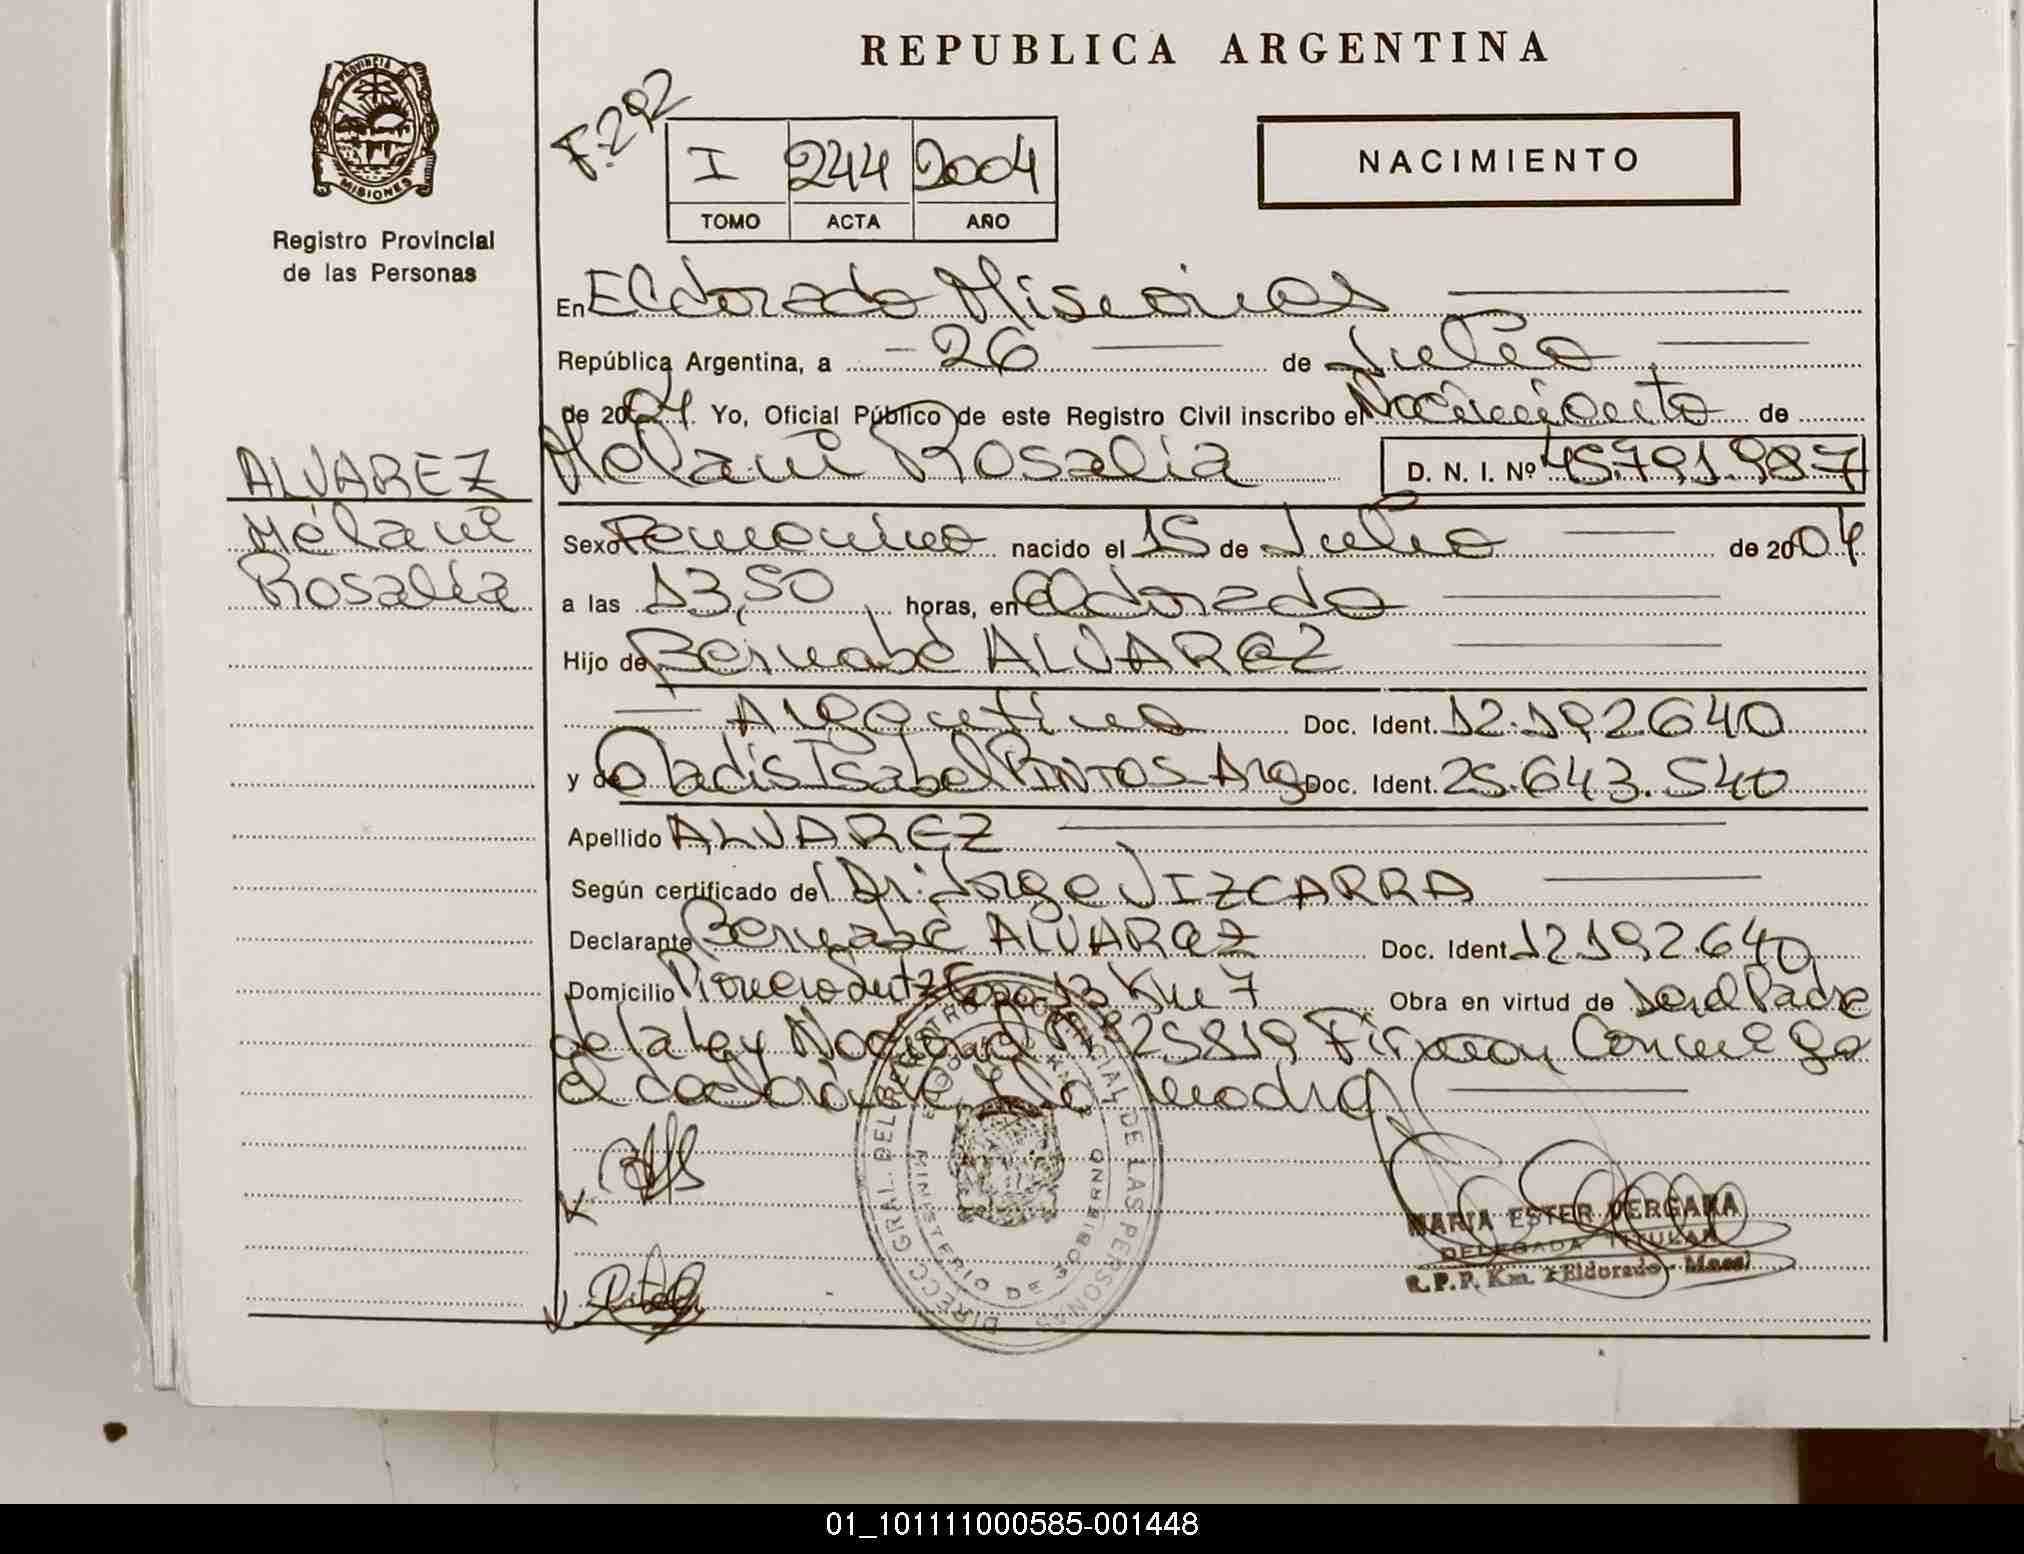 REPUBLICA ARGENTINA
PROVINCIA DE
MISIONES
Registro Provincial
de las Personas
F.292
I 244 2004
TOMO ACTA AÑO
NACIMIENTO
En Eldorado Misiones
República Argentina, a 26 de Julio
de 2004. Yo, Oficial Público de este Registro Civil inscribo el Nacimiento de
Melani Rosalia D. N. I. Nº 45.791.987
ALVAREZ
Melani
Rosalia
Sexo Femenino nacido el 15 de Julio de 2004
a las 13,50 horas, en Eldorado
Hijo de Bernabé ALVAREZ
Argentino Doc. Ident. 12.192.640
y de Gladis Isabel PINTOS Arg Doc. Ident. 25.643.540
Apellido ALVAREZ
Según certificado de Dr. Jorge VIZCARRA
Declarante Bernabé ALVAREZ Doc. Ident. 12.192.640
Domicilio Pionero Km 7 Obra en virtud de Padre
de la ley Nacional Nº 25819 Firman Conmigo
el declarante y la madre
DIRECC. GRAL. DEL REGISTRO PROVINCIAL DE LAS PERSONAS
MINISTERIO DE GOBIERNO
MARIA ESTER VERGARA
DELEGADA TITULAR
R.P.P. Km. Eldorado - Mnes)
01_101111000585-001448